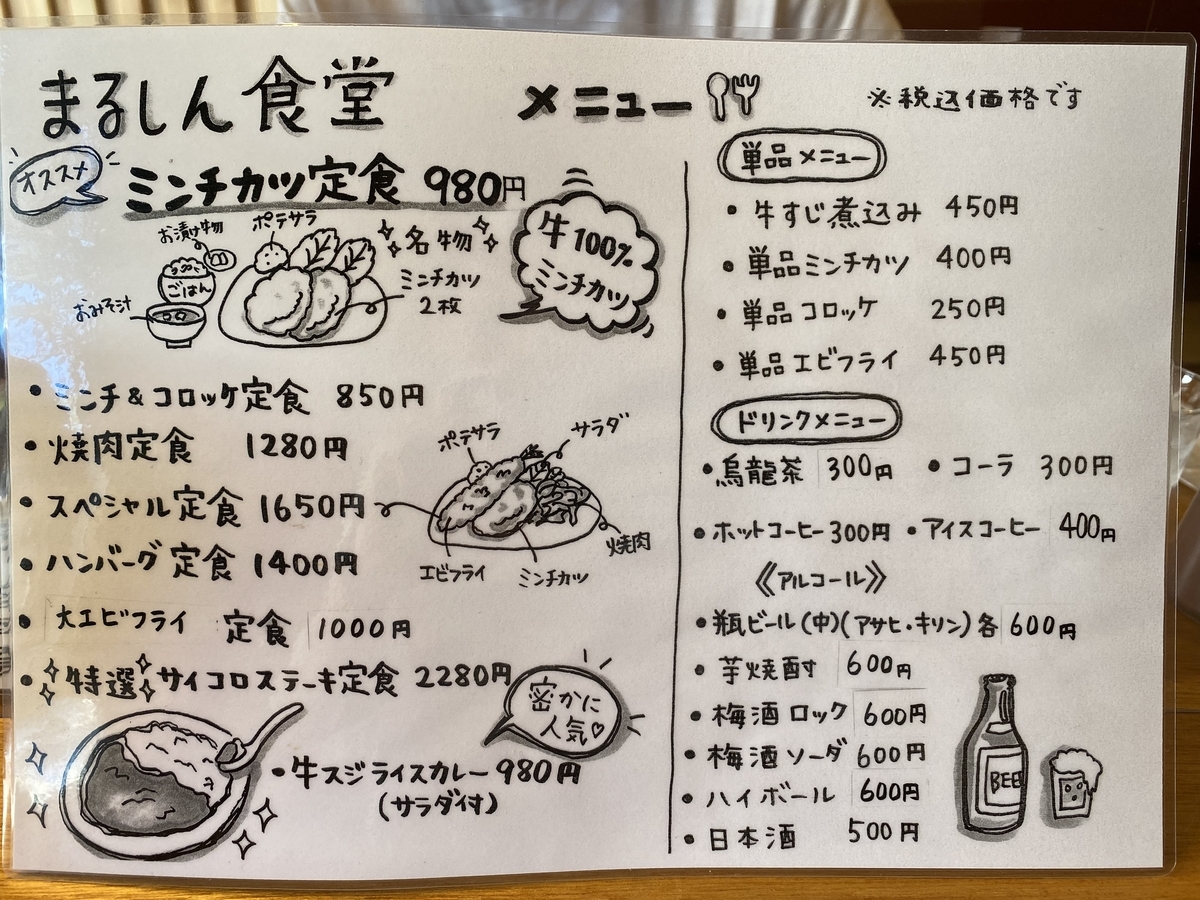 まるしん食堂
メニュー
※税込価格です
オススメ
ミンチカツ定食 980円
お漬け物
ポテサラ
ごはん
おみそ汁
名物
ミンチカツ
2枚
牛100%
ミンチカツ
・ミンチ&コロッケ定食 850円
・焼肉定食 1280円
・スペシャル定食 1650円
ポテサラ
サラダ
焼肉
エビフライ
ミンチカツ
・ハンバーグ定食 1400円
・大エビフライ 定食 1000円
・特選サイコロステーキ定食 2280円
密かに
人気♡
・牛スジライスカレー 980円
(サラダ付)
単品メニュー
・牛すじ煮込み 450円
・単品ミンチカツ 400円
・単品コロッケ 250円
・単品エビフライ 450円
ドリンクメニュー
・烏龍茶 300円 ・コーラ 300円
・ホットコーヒー 300円 ・アイスコーヒー 400円
《アルコール》
・瓶ビール(中)(アサヒ・キリン)各600円
・芋焼酎 600円
・梅酒ロック 600円
・梅酒ソーダ 600円
・ハイボール 600円
・日本酒 500円
BEE